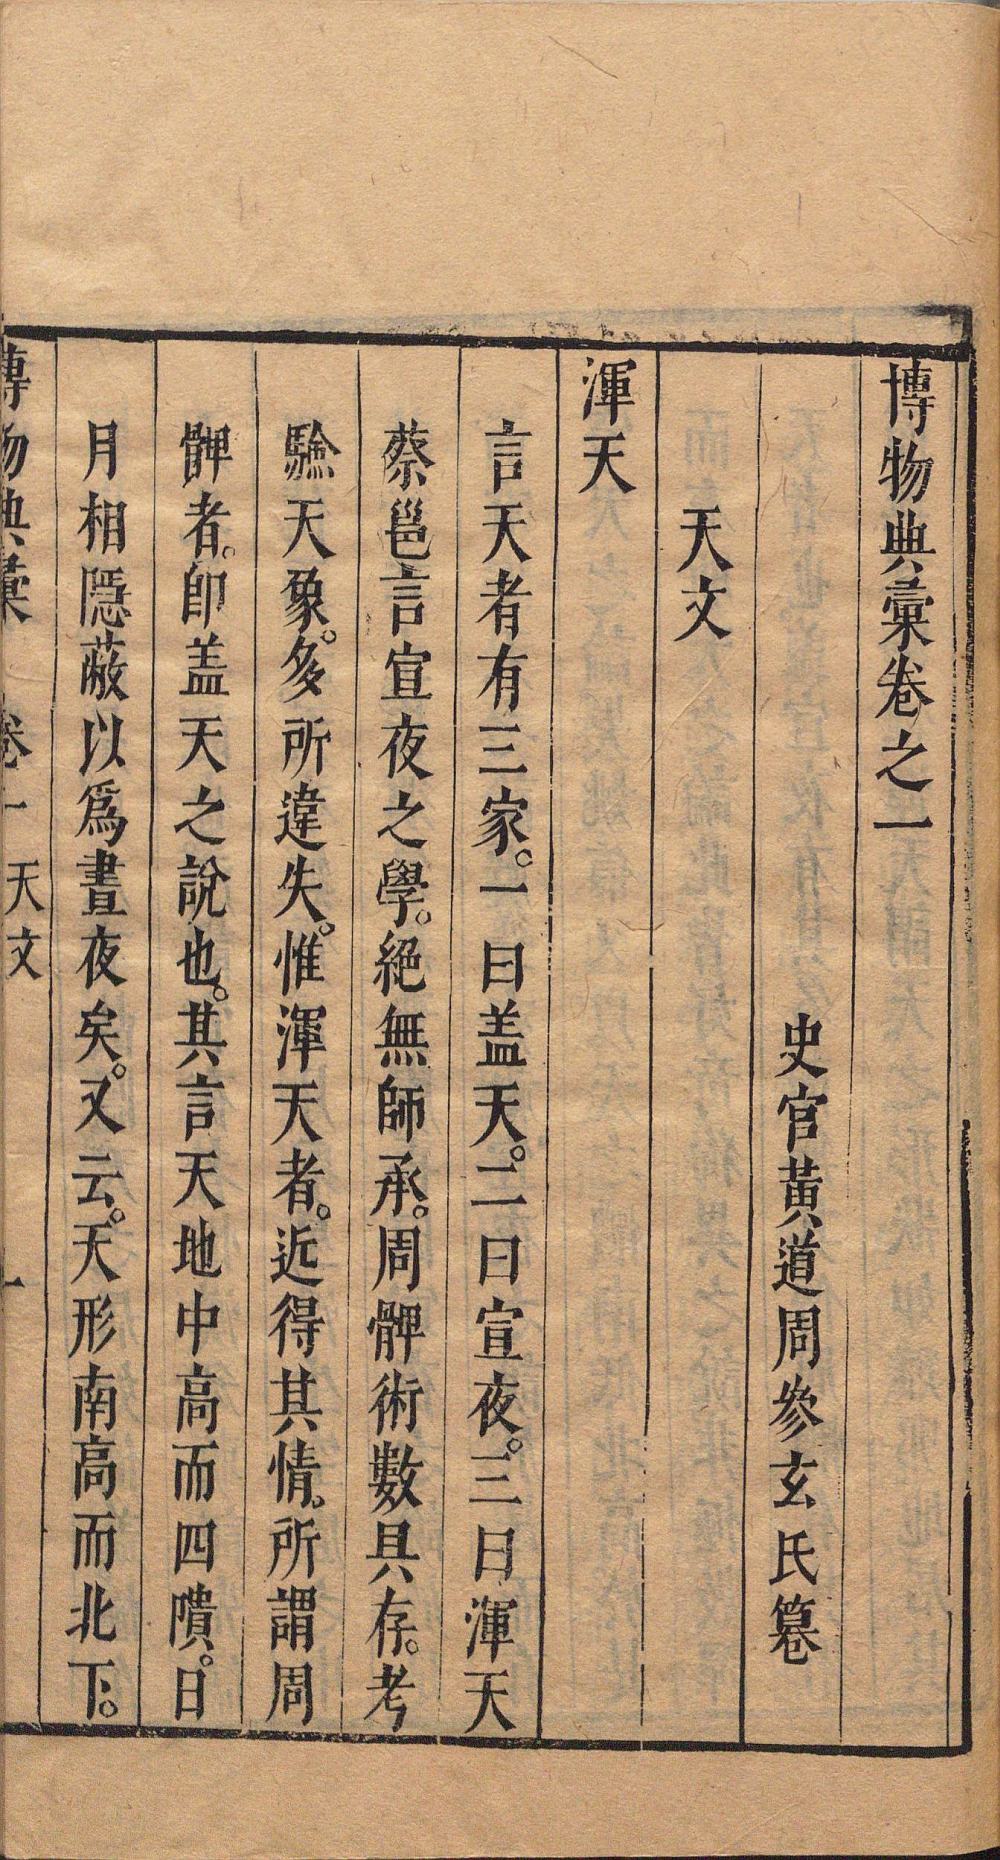 博物典彙卷之一
史官黃道周參玄氏纂
天文
渾天
言天者有三家。一曰盖天。二曰宣夜。三曰渾天
蔡邕言宣夜之學。絕無師承。周髀術數具存。考
驗天象。多所違失。惟渾天者。近得其情。所謂周
髀者。卽盖天之說也。其言天地中高而四隤。日
月相隱蔽以爲晝夜矣。又云。天形南高而北下。
博物典彙 卷一 天文 一